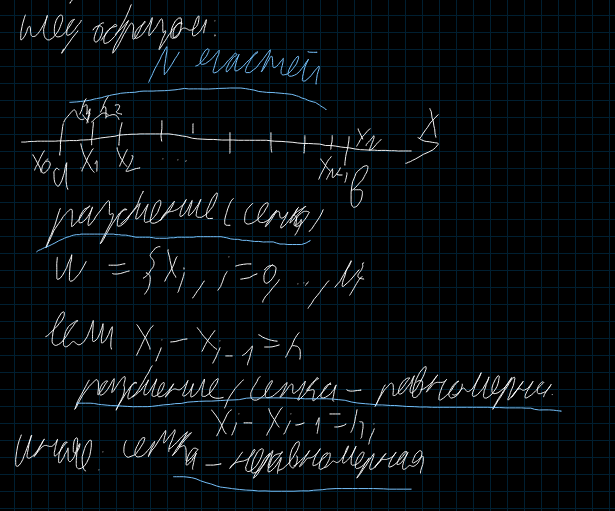 образом:
N частей
h₁ h₂
x₀ a x₁ x₂ ... xₙ₋₁ b xₙ x
разбиение (сетка)
ω = {xᵢ, i=0, ..., N}
если xᵢ - xᵢ₋₁ = h
разбиение/сетка - равномерн.
xᵢ - xᵢ₋₁ = hᵢ
иначе сетка - неравномерная